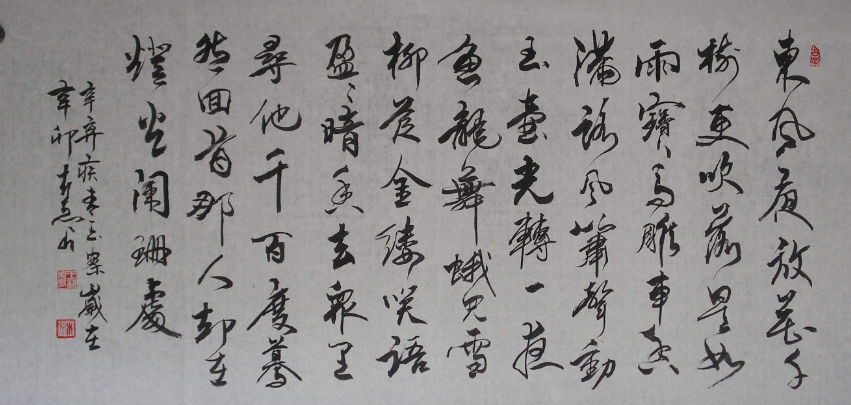 東風夜放花千
樹更吹落星如
雨寶〻馬雕車香
滿路風簫聲動
玉壺光轉一夜
魚龍舞蛾兒雪
柳黃金縷笑語
盈〻暗香去衆里
尋他千百度驀
然回首那人却在
燈火闌珊處
辛弃疾青玉案歲在
辛卯